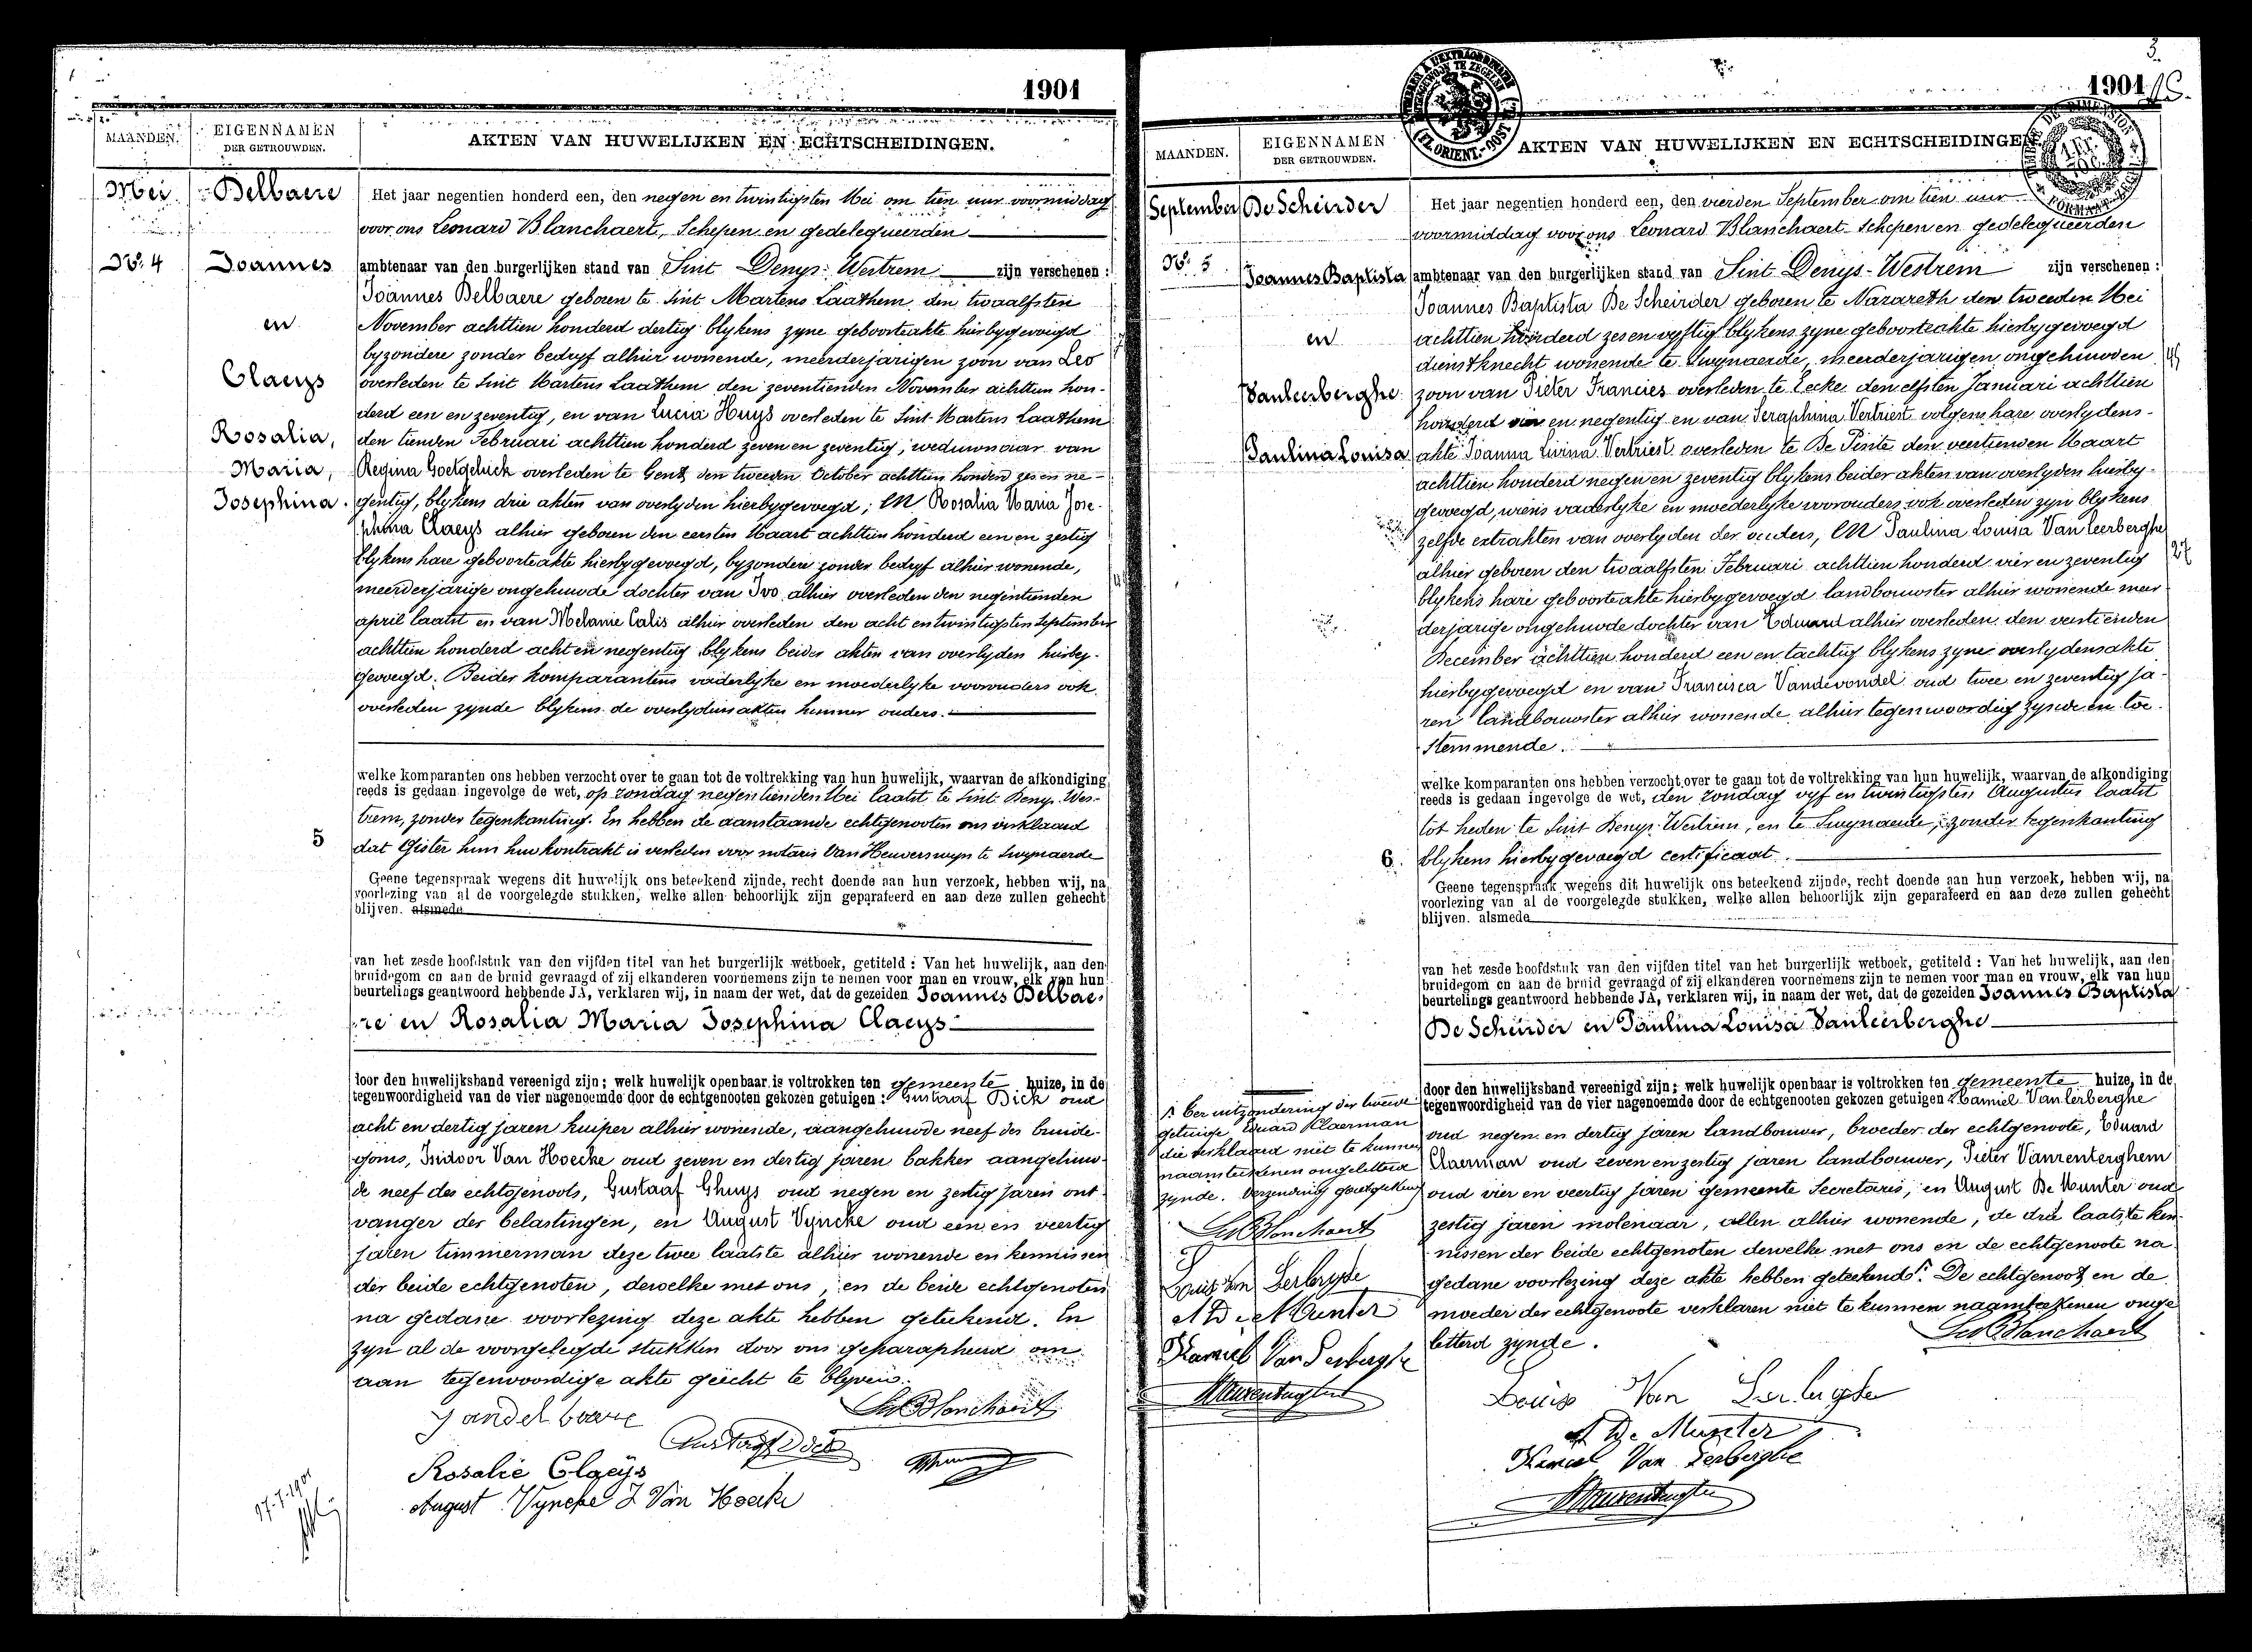 1901
MAANDEN.
EIGENNAMEN
DER GETROUWDEN.
AKTEN VAN HUWELIJKEN EN ECHTSCHEIDINGEN.
Mei
Nr. 4
Delbaere
Joannes
en
Claeys
Rosalia,
Maria,
Josephina.
Het jaar negentien honderd een, den negen en twintigsten Mei om tien uur voormiddag
voor ons Leonard Blanchaert, Schepen en gedelegueerden
ambtenaar van den burgerlijken stand van Sint Denys-Westrem zijn verschenen:
Joannes Delbaere geboren te Sint Martens Laathem den twaalfsten
November achttien honderd dertig blykens zyne geboorteakte hierbygevoegd
byzondere zonder bedryf alhier wonende, meerderjarigen zoon van Leo
overleden te Sint Martens Laathem den zeventienden November achttien hon-
derd een en zeventig, en van Lucia Huys overleden te Sint-Martens Laathem
den tienden Februari achttien honderd zeven en zeventig, weduwnaar van
Regina Goetgeluck overleden te Gend den tweeden October achttien honderd zes en ne-
gentig, blykens drie akten van overlyden hierbygevoegd; en Rosalia Maria Jose-
phina Claeys alhier geboren den eersten Maart achttien honderd een en zestig
blykens hare geboorteakte hierbygevoegd, byzondere zonder bedryf alhier wonende,
meerderjarige ongehuwde dochter van Ivo alhier overleden den negentienden
april laatst en van Melanie Calis alhier overleden den acht en twintigsten September
achttien honderd acht en negentig blykens beider akten van overlyden hierby-
gevoegd. Beider komparantens vaderlyke en moederlyke voorouders ook
overleden zynde blykens de overlydensakten hunner ouders.
welke komparanten ons hebben verzocht over te gaan tot de voltrekking van hun huwelijk, waarvan de afkondiging
reeds is gedaan ingevolge de wet, op zondag negentienden Mei laatst te Sint Denys-Wes-
trem, zonder tegenkanting. En hebben de aanstaande echtgenooten ons verklaard
5
dat Gister hun huwkontrakt is verleden voor notaris Van Heuverswyn te Swynaerde
Geene tegenspraak wegens dit huwelijk ons beteekend zijnde, recht doende aan hun verzoek, hebben wij, na
voorlezing van al de voorgelegde stukken, welke allen behoorlijk zijn geparafeerd en aan deze zullen gehecht
blijven. alsmede
van het zesde hoofdstuk van den vijfden titel van het burgerlijk wetboek, getiteld: Van het huwelijk, aan den
bruidegom en aan de bruid gevraagd of zij elkanderen voornemens zijn te nemen voor man en vrouw, elk van hun
beurtelings geantwoord hebbende JA, verklaren wij, in naam der wet, dat de gezeiden Joannes Delbae-
re en Rosalia Maria Josephina Claeys
door den huwelijksband vereenigd zijn; welk huwelijk openbaar is voltrokken ten gemeente huize, in de
tegenwoordigheid van de vier nagenoemde door de echtgenooten gekozen getuigen: Gustaaf Dick oud
acht en dertig jaren kuiper alhier wonende, aangehuwde neef des bruide-
goms, Isidoor Van Hoecke oud zeven en dertig jaren bakker aangehuw-
de neef des echtgenoots, Gustaaf Ghuys oud negen en zestig jaren ont-
vanger der belastingen, en August Vyncke oud een en veertig
jaren timmerman deze twee laatste alhier wonende en kennissen
der beide echtgenoten, dewelke met ons, en de beide echtgenoten
na gedane voorlezing deze akte hebben geteekend. En
zyn al de voorgelegde stukken door ons geparapheerd om
aan tegenwoordige akte gehecht te blyven.
Leo Blanchaert
Rosalie Claeys
August Vyncke J Van Hoecke
17-7-1901
1901
MAANDEN.
EIGENNAMEN
DER GETROUWDEN.
AKTEN VAN HUWELIJKEN EN ECHTSCHEIDINGEN
September
Nr. 5
De Scheirder
Joannes Baptista
en
Vanleerberghe
Paulina Louisa
Het jaar negentien honderd een, den vierden September om tien uur
voormiddag voor ons Leonard Blanchaert Schepen en gedelegueerden
ambtenaar van den burgerlijken stand van Sint Denys-Westrem zijn verschenen:
Joannes Baptista De Scheirder geboren te Nazareth den tweeden Mei
achttien honderd zes en vyftig blykens zyne geboorteakte hierbygevoegd
dienstknecht wonende te Swynaerde, meerderjarigen ongehuwden
zoon van Pieter Francies overleden te Eecke den elfsten Januari achttien
honderd een en negentig en van Seraphina Vertriest volgens hare overlydens-
akte Joanna Livina Vertriest overleden te De Pinte den veertienden Maart
achttien honderd negen en zeventig blykens beider akten van overlyden hierby-
gevoegd, wiens vaderlyke en moederlyke voorouders ook overleden zyn blykens
zelfde extrakten van overlyden der ouders, en Paulina Louisa Van leerberghe
alhier geboren den twaalfsten Februari achttien honderd vier en zeventig
blykens hare geboorteakte hierbygevoegd landbouwster alhier wonende meer-
derjarige ongehuwde dochter van Eduard alhier overleden den veertienden
December achttien honderd een en tachtig blykens zyne overlydensakte
hierbygevoegd en van Francisca Vandevondel oud twee en zeventig ja-
ren landbouwster alhier wonende alhier tegenwoordig zynde en toe-
stemmende.
welke komparanten ons hebben verzocht over te gaan tot de voltrekking van hun huwelijk, waarvan de afkondiging
reeds is gedaan ingevolge de wet, den zondag vyf en twintigsten Augustus laatst
tot heden te Sint Denys-Westrem, en te Swynaerde, zonder tegenkanting
6.
blykens hierbygevoegd certificaat.
Geene tegenspraak wegens dit huwelijk ons beteekend zijnde, recht doende aan hun verzoek, hebben wij, na
voorlezing van al de voorgelegde stukken, welke allen behoorlijk zijn geparafeerd en aan deze zullen gehecht
blijven. alsmede
van het zesde hoofdstuk van den vijfden titel van het burgerlijk wetboek, getiteld: Van het huwelijk, aan den
bruidegom en aan de bruid gevraagd of zij elkanderen voornemens zijn te nemen voor man en vrouw, elk van hun
beurtelings geantwoord hebbende JA, verklaren wij, in naam der wet, dat de gezeiden Joannes Baptista
De Scheirder en Paulina Louisa Vanleerberghe
door den huwelijksband vereenigd zijn; welk huwelijk openbaar is voltrokken ten gemeente huize, in de
tegenwoordigheid van de vier nagenoemde door de echtgenooten gekozen getuigen Kamiel Vanlerberghe
oud negen en dertig jaren landbouwer, broeder der echtgenoote, Eduard
Claerman oud zeven en zestig jaren landbouwer, Pieter Vanrenterghem
oud vier en veertig jaren gemeente Secretaris, en August De Munter oud
zestig jaren molenaar, allen alhier wonende, de drie laatste ken-
nissen der beide echtgenoten dewelke met ons en de echtgenoote na
gedane voorlezing deze akte hebben geteekend. De echtgenoot en de
moeder der echtgenoote verklaren niet te kunnen naamteekenen onge-
letterd zynde.
Leo Blanchaert
Louis Van Lerberghe
A. De Munter
Kamiel Van Lerberghe
Ber uitzondering der tweede
getuige Eduard Klaerman
die verklaard niet te kunnen
naamteekenen ongeletterd
zynde. Verzending goedgekeurd
Leo Blanchaert
Louis Van Lerberghe
A De Munter
Kamiel Van Lerberghe